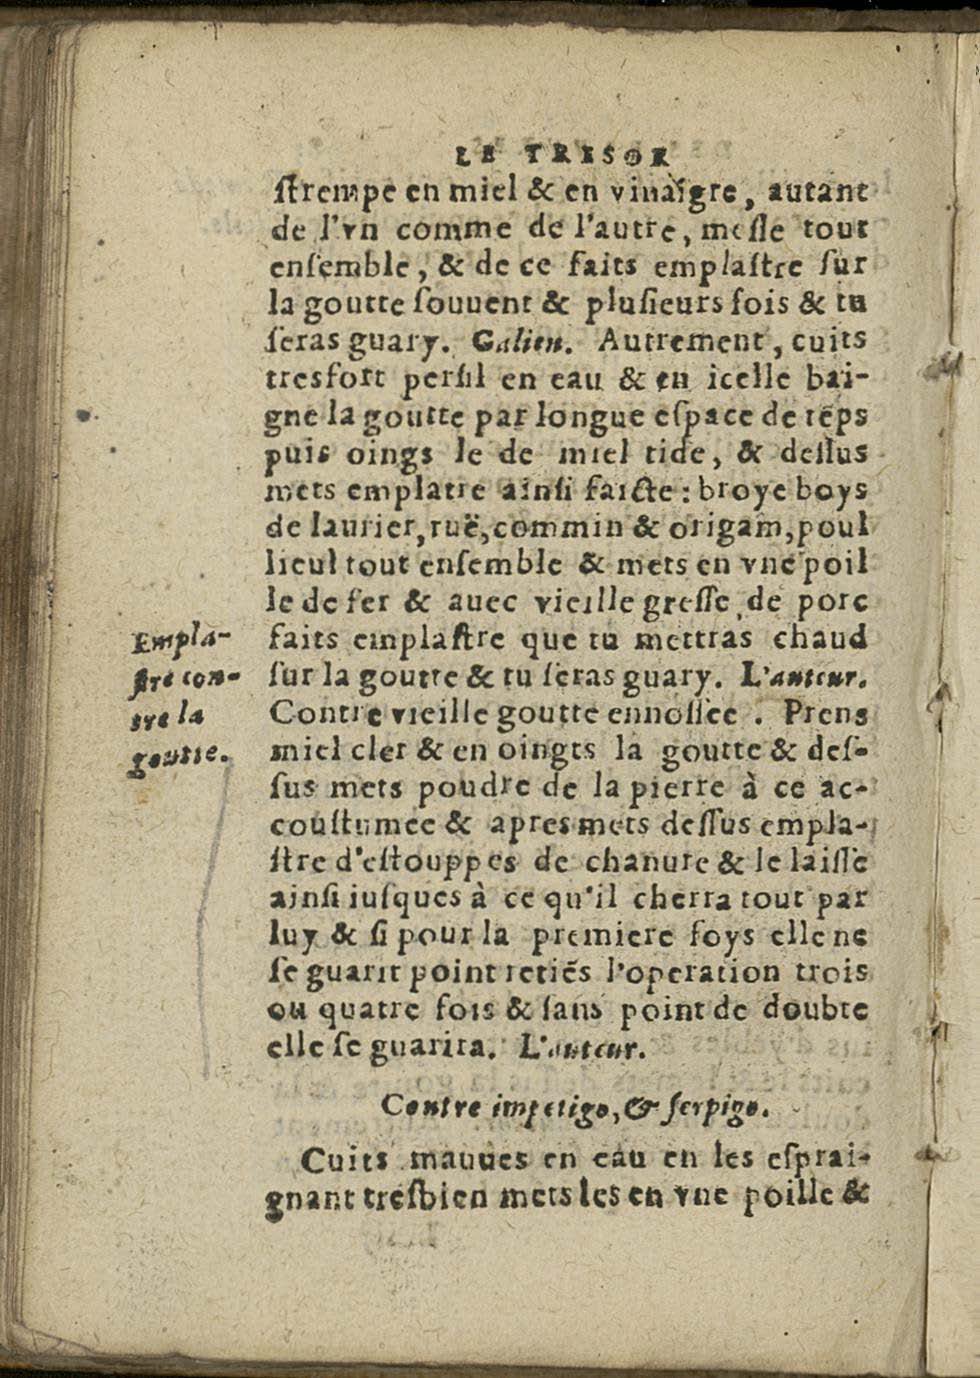 LE TRESOR
ſtrempe en miel & en vinaigre, autant
de l'vn comme de l'autre, meſle tout
enſemble, & de ce faits emplaſtre ſur
la goutte ſouuent & pluſieurs fois & tu
ſeras guary. Galien. Autrement, cuits
tresfort perſil en eau & en icelle bai-
gne la goutte par longue eſpace de tẽps
puis oings le de miel tide, & deſſus
mets emplatre ainſi faicte: broye boys
de laurier, ruë, commin & origam, poul
lieul tout enſemble & mets en vne poil
le de fer & auec vieille greſſe de porc
faits emplaſtre que tu mettras chaud
ſur la goutte & tu ſeras guary. L'auteur.
Empla-
ſtre con-
tre la
goutte.
Contre vieille goutte ennoſſee. Prens
miel cler & en oingts la goutte & deſ-
ſus mets poudre de la pierre à ce ac-
couſtumee & apres mets deſſus empla-
ſtre d'eſtouppes de chanure & le laiſſe
ainſi iuſques à ce qu'il cherra tout par
luy & ſi pour la premiere foys elle ne
ſe guarit point retiẽs l'operation trois
ou quatre fois & ſans point de doubte
elle ſe guarira. L'auteur.
Contre impetigo, & ſerpigo.
Cuits mauues en eau en les eſprai-
gnant treſbien mets les en vne poille &